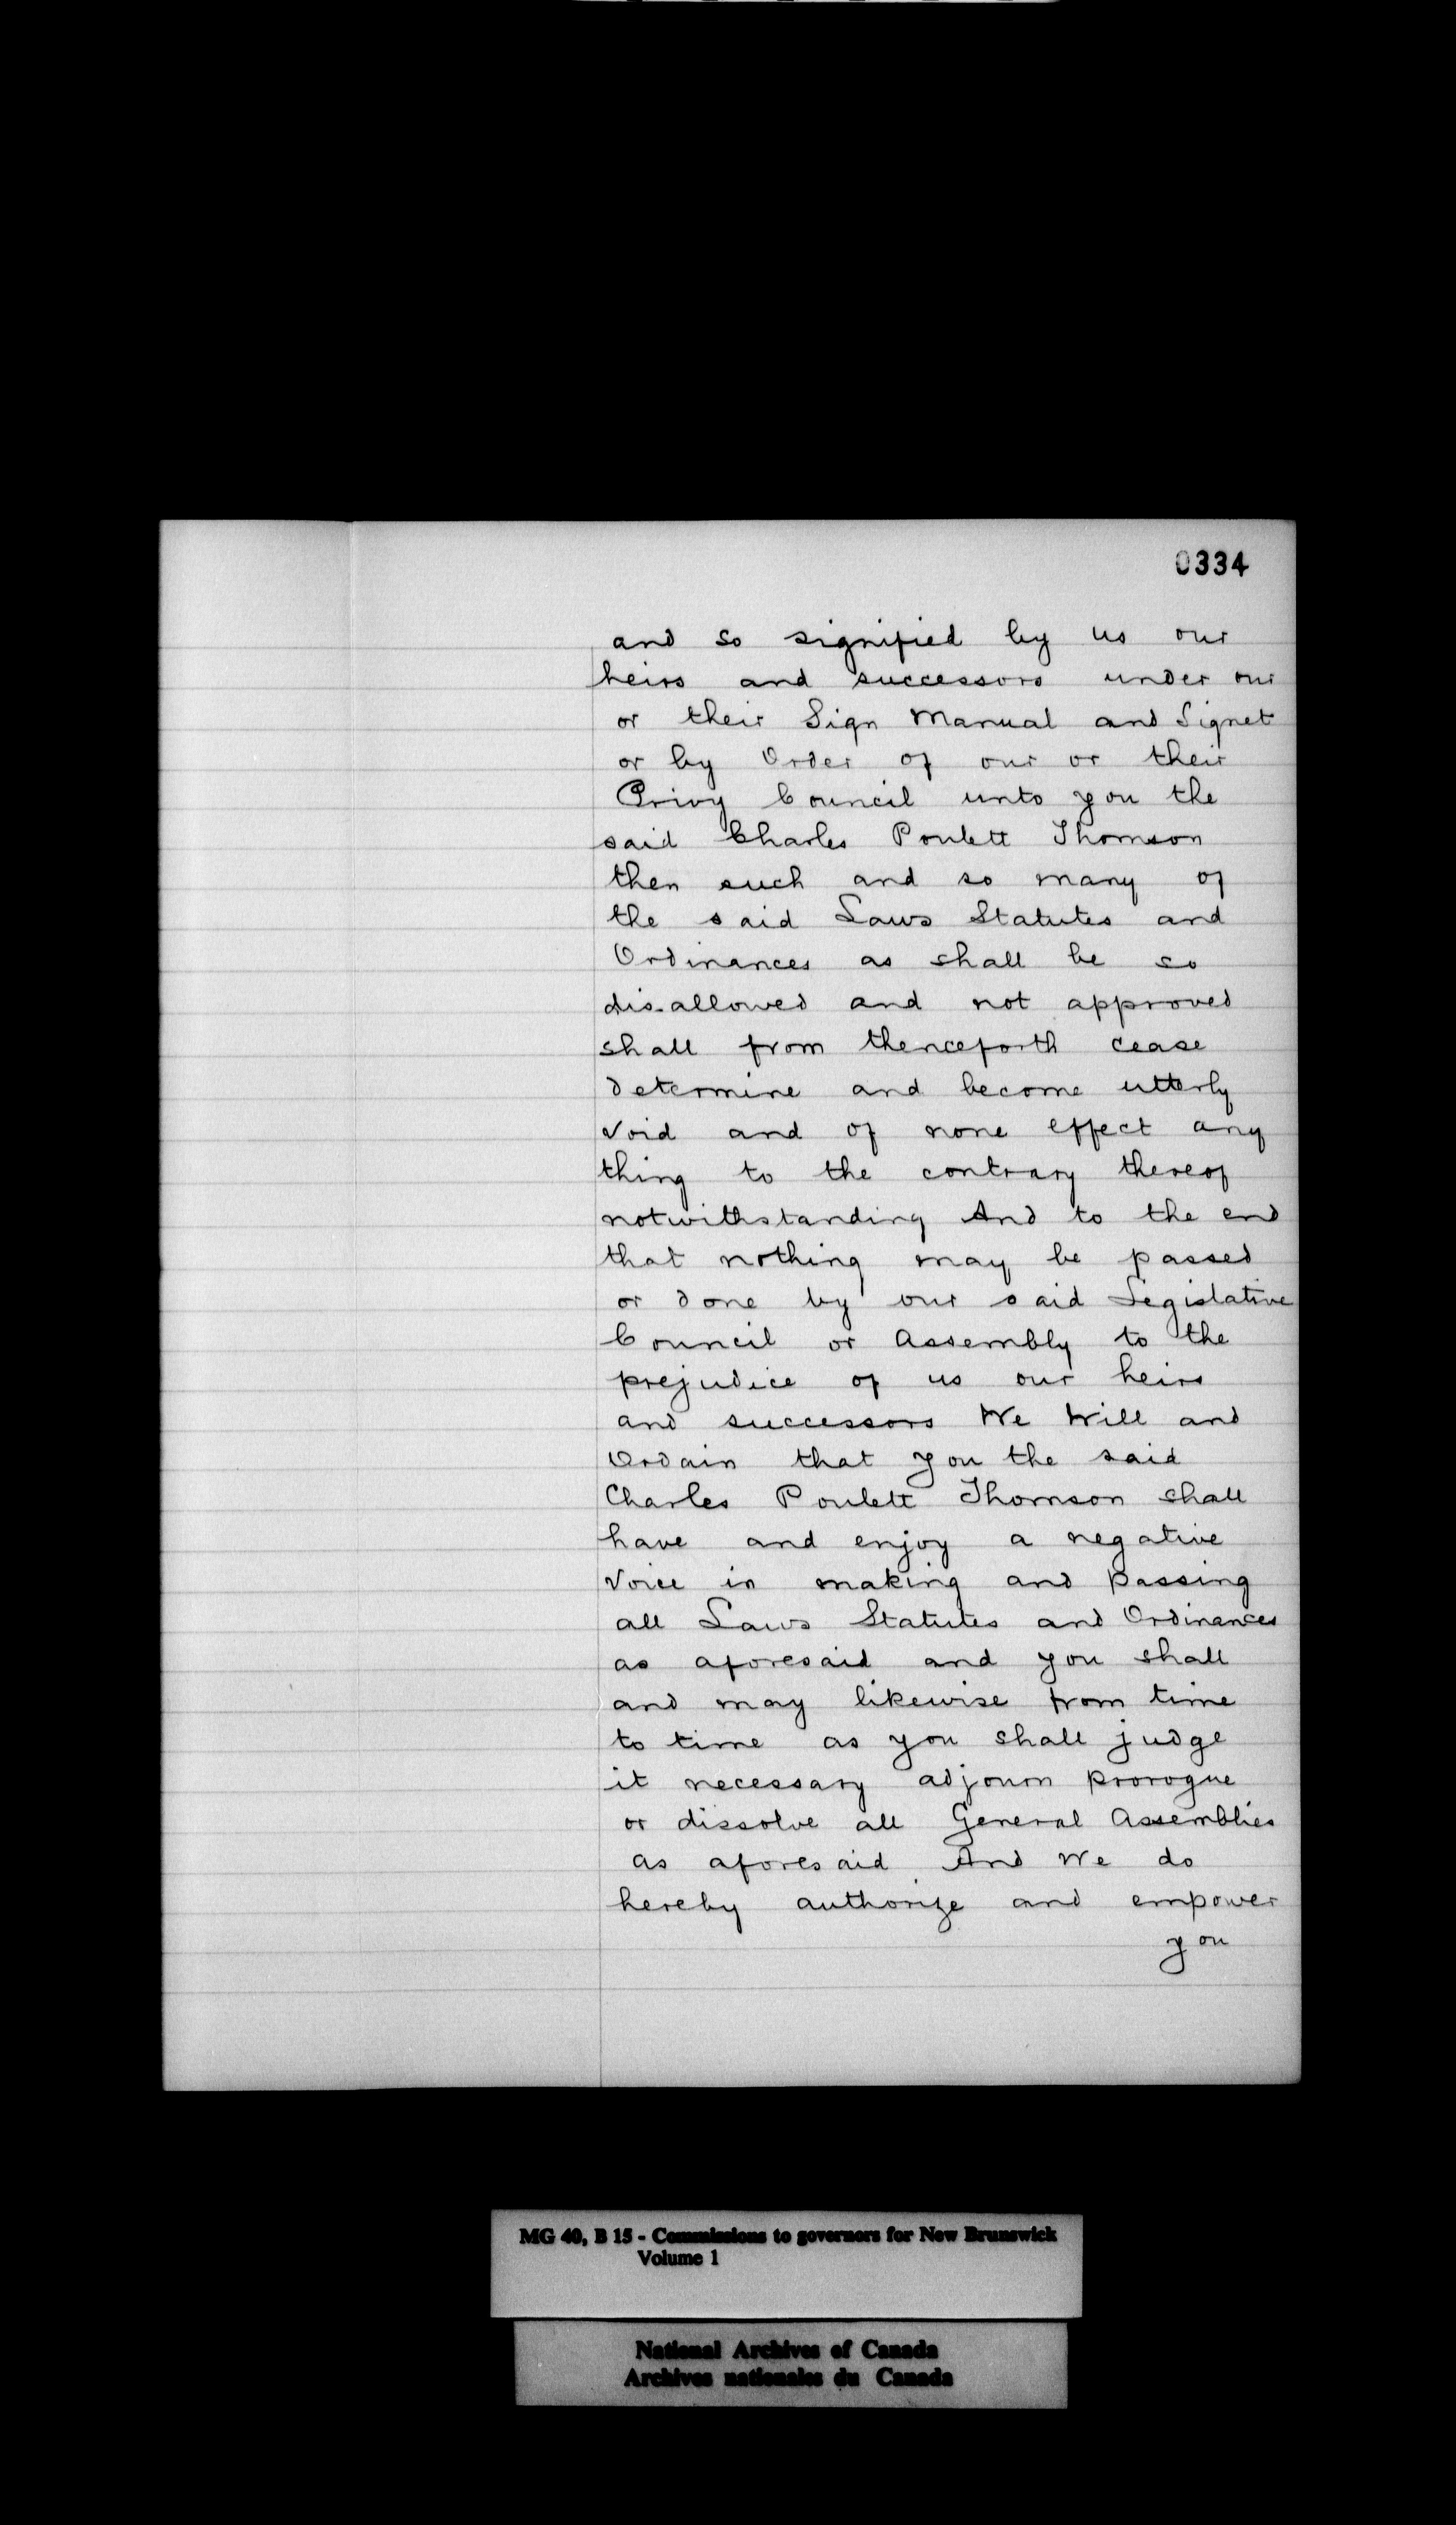 0334
and so signified by us our
heirs and successors under our
or their Sign Manual and Signet
or by Order of our or their
Privy Council unto you the
said Charles Poulett Thomson
then such and so many of
the said Laws Statutes and
Ordinances as shall be so
dis-allowed and not approved
shall from thenceforth cease
determine and become utterly
void and of none effect any
thing to the contrary thereof
notwithstanding And to the end
that nothing may be passed
or done by our said Legislative
Council or Assembly to the
prejudice of us our heirs
and successors We Will and
Ordain that you the said
Charles Poulett Thomson shall
have and enjoy a negative
voice in making and passing
all Laws Statutes and Ordinances
as aforesaid and you shall
and may likewise from time
to time as you shall judge
it necessary adjourn prorogue
or dissolve all General Assemblies
as aforesaid And We do
hereby authorize and empower
you
MG 40, B 15 - Commissions to governors for New Brunswick
Volume 1
National Archives of Canada
Archives nationales du Canada